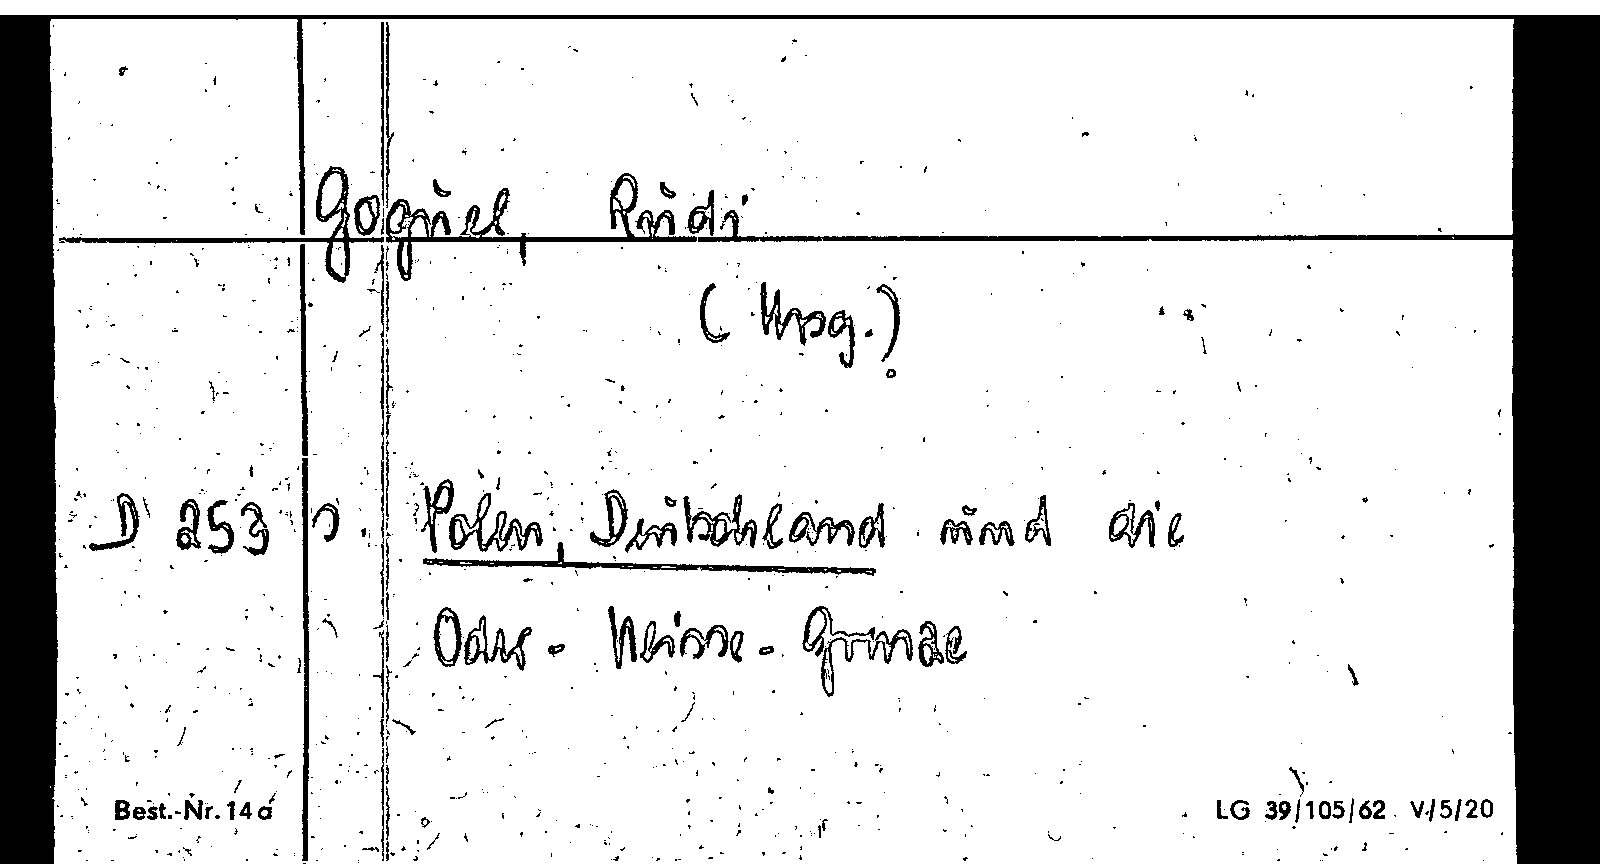 Goguel, Rudi
(Hrsg.)
D 253 s. Polen, Deutschland und die
Oder-Neisse-Grenze
Best.-Nr. 14a
LG 39/105/62 V/5/20